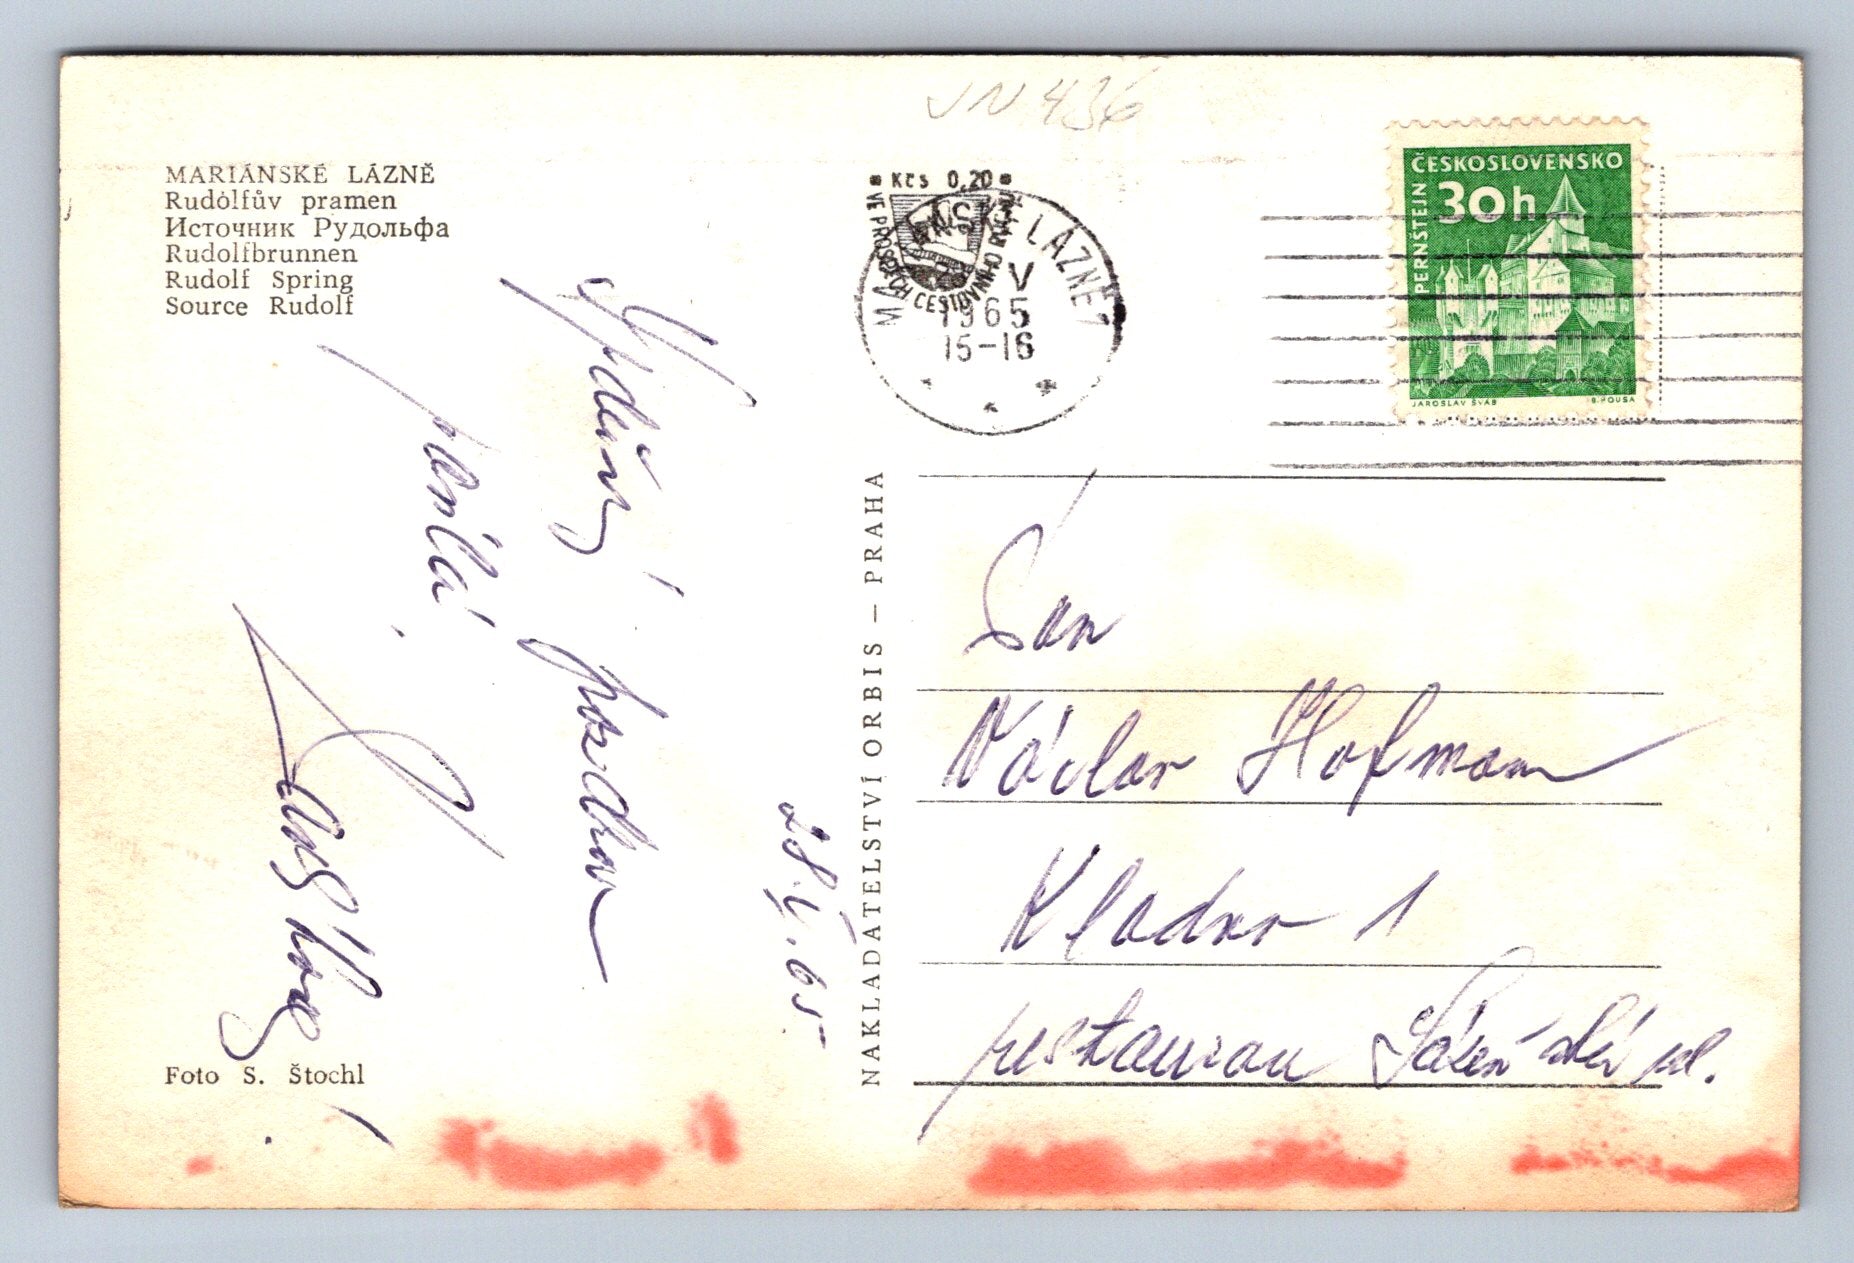 VN 436
MARIÁNSKÉ LÁZNĚ
Rudolfův pramen
Источник Рудольфа
Rudolfbrunnen
Rudolf Spring
Source Rudolf
Kčs 0,20
VE PROSPĚCH CESTOVNÍHO RUCHU
LÁZNĚ 1
V
1965
15-16
ČESKOSLOVENSKO
30h
PERNŠTEJN
JAROSLAV ŠVÁB
B. HOUSA
Srdečný pozdrav
posílá
28.V.65
NAKLADATELSTVÍ ORBIS – PRAHA
Pan
Václav Hofman
Kladno 1
restaurau
Foto S. Štochl